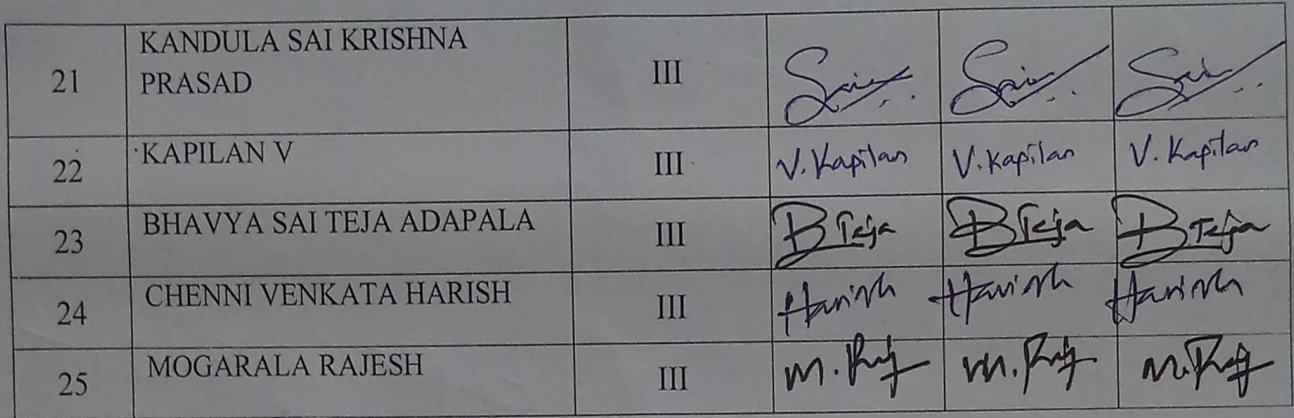 21 KANDULA SAI KRISHNA
PRASAD III Sai Sai Sai
22 KAPILAN V III V. Kapilan V. Kapilan V. Kapilan
23 BHAVYA SAI TEJA ADAPALA III B Teja B Teja B Teja
24 CHENNI VENKATA HARISH III Harish Harish Harish
25 MOGARALA RAJESH III M. Raj M. Raj M. Raj